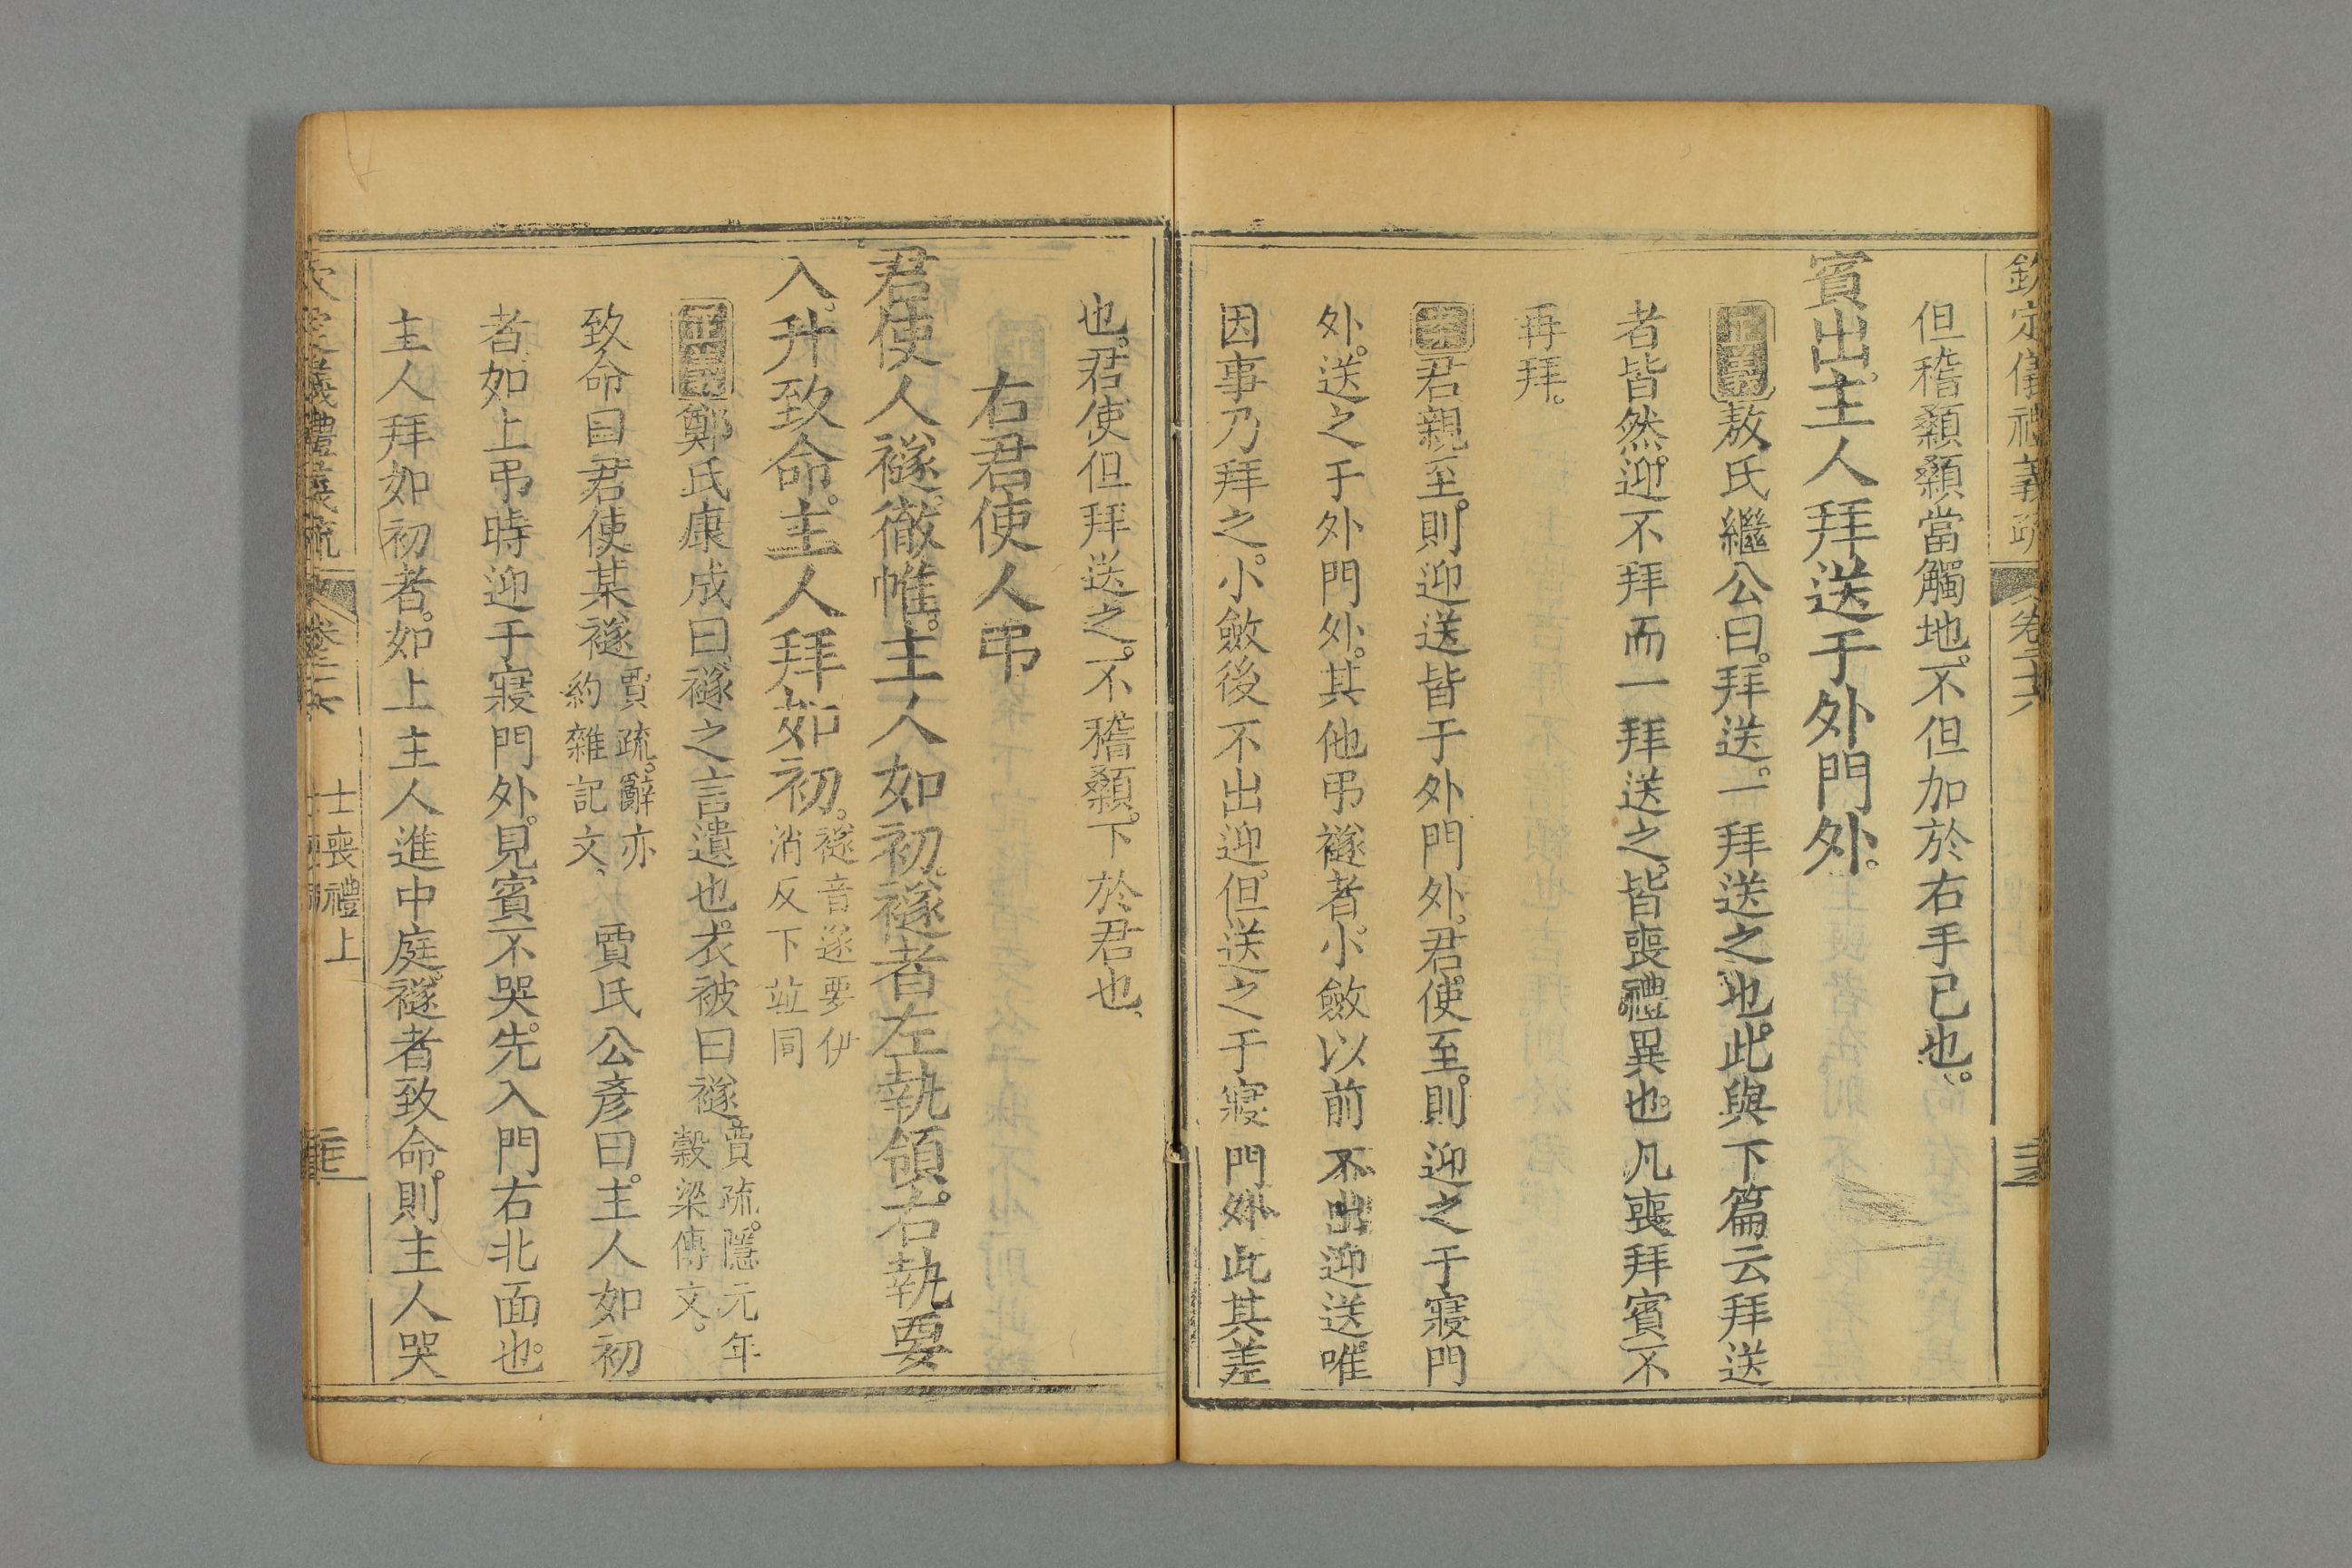 欽定儀禮義疏 卷二十六
但稽顙顙當觸地。不但加於右手已也。
賓出。主人拜送于外門外。
正義敖氏繼公曰。拜送。一拜送之也。此與下篇云拜送
者皆然。迎不拜而一拜送之。皆喪禮異也。凡喪拜賓不
再拜。
案君親至。則迎送皆于外門外。君使至。則迎之于寢門
外。送之于外門外。其他弔襚者。小斂以前不出迎送。唯
因事乃拜之。小斂後不出迎。但送之于寢門外。此其差
也。君使但拜送之。不稽顙。下於君也。
右君使人弔
君使人襚。徹帷。主人如初。襚者左執領。右執要
入。升致命。主人拜如初。襚音遂要伊
消反下竝同
正義鄭氏康成曰。襚之言遺也。衣被曰襚。賈疏。隱元年
穀梁傳文。
致命曰君使某襚賈疏。辭亦
約雜記文。 賈氏公彥曰。主人如初
者。如上弔時迎于寢門外。見賓不哭。先入門右北面也。
主人拜如初者。如上主人進中庭。襚者致命。則主人哭
士喪禮上